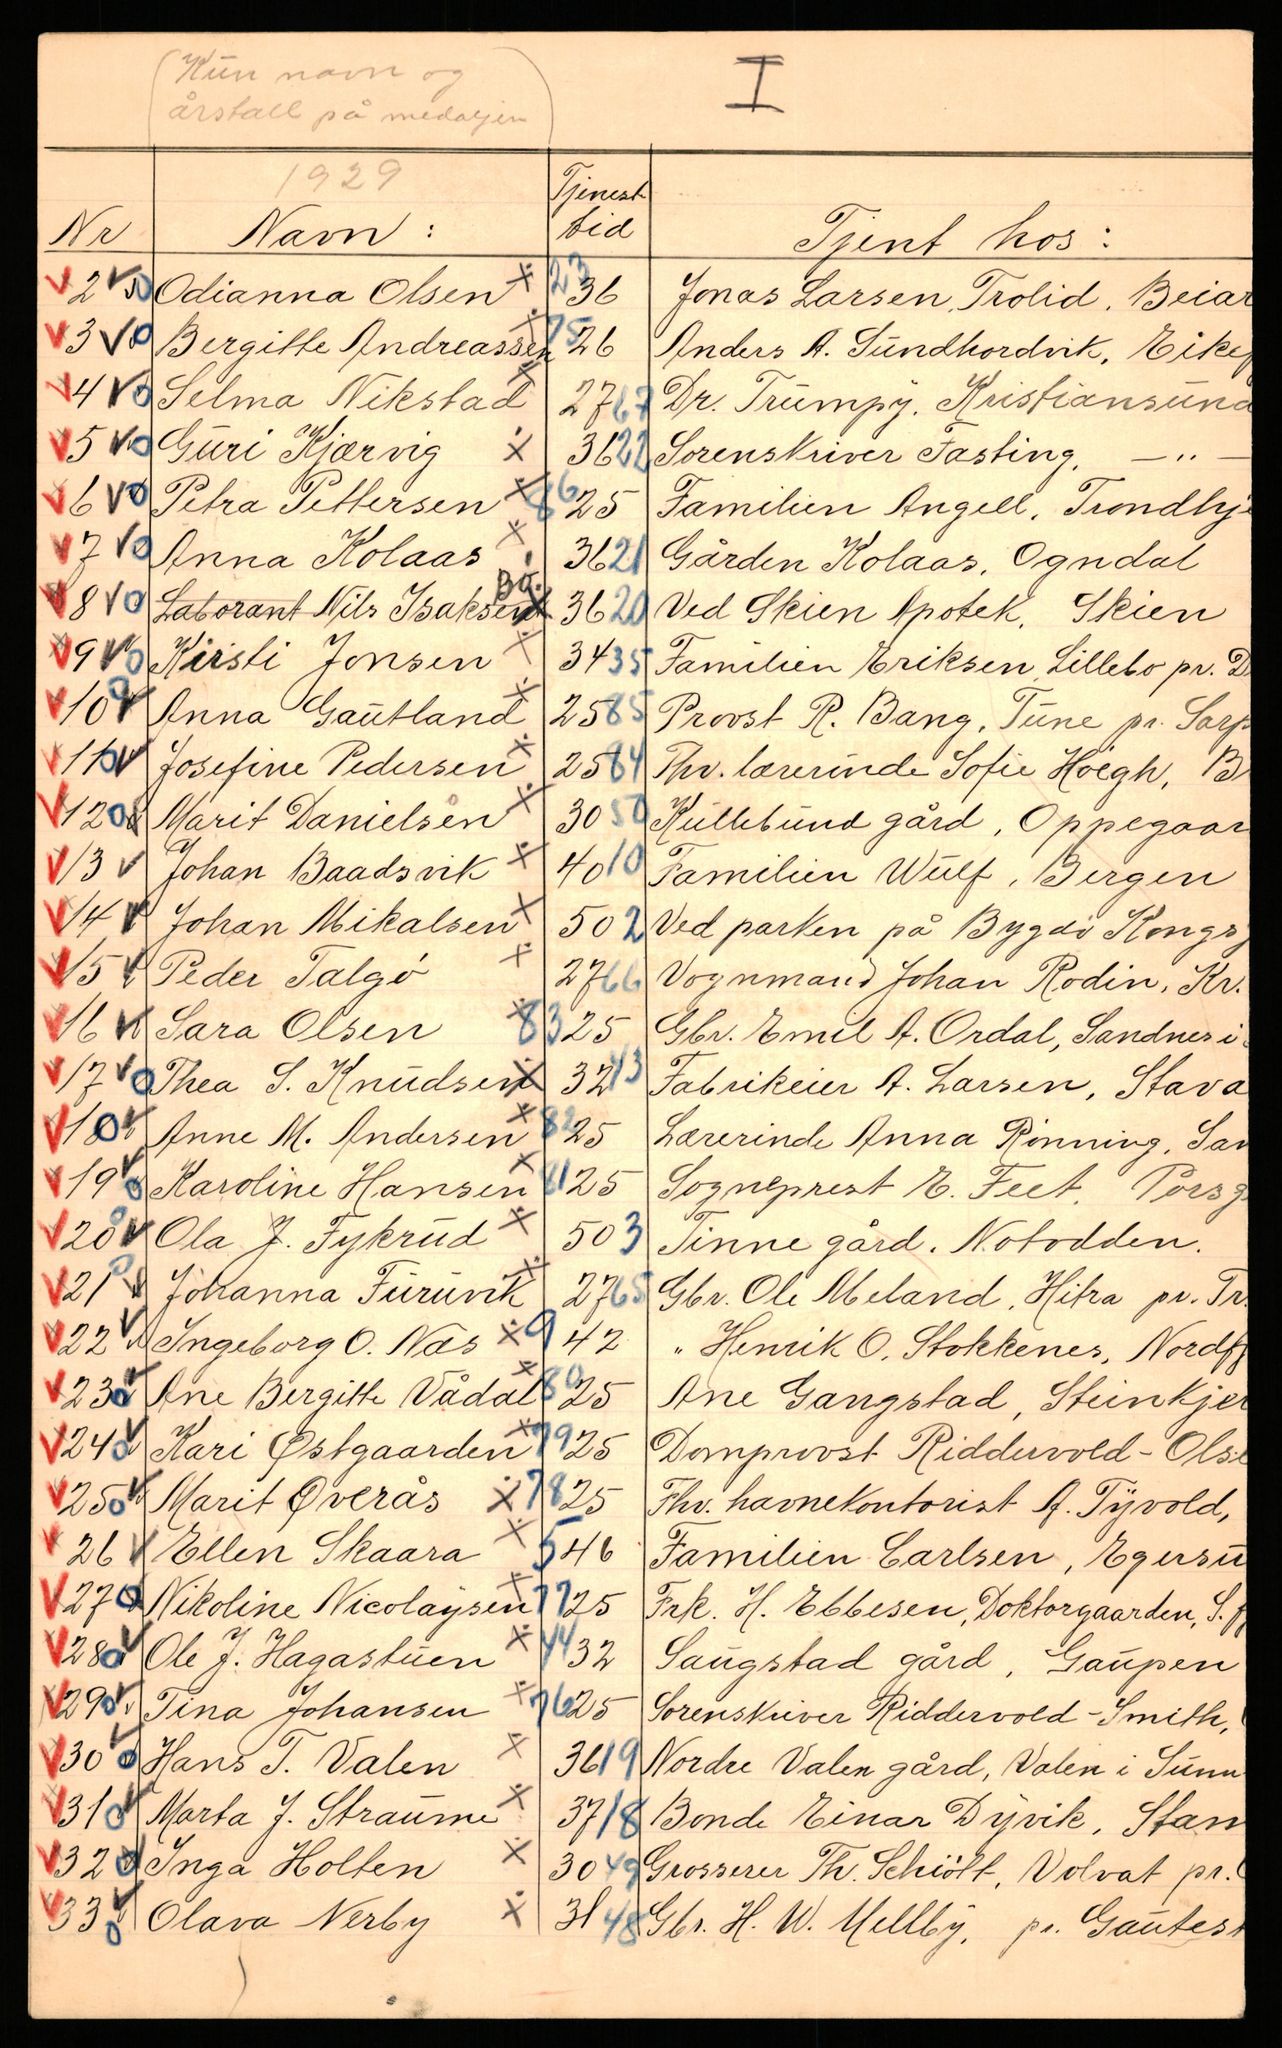 (Kun navn og
årstall på medaljen)
I
1929
Nr Navn : Tjenest tid Tjent hos :
2 Odianna Olsen 23 36 Jonas Larsen, Trolid, Beiar
3 Bergitte Andreassen 75 26 Anders A. Sundhordvik, Eike
4 Selma Nikstad 27 67 Dr. Trumpy, Kristiansund
5 Guri Kjærvig 36 22 Sorenskriver Fasting, — „ —
6 Petra Pettersen 86 25 Familien Angell, Trondhj
7 Anna Kolaas 36 21 Gården Kolaas, Ogndal
8 Laborant Nils Isaksen 36 20 Ved Skien Apotek, Skien
9 Kirsti Jonsen 34 35 Familien Eriksen, Lillebo pr. D
10 Anna Gautland 25 85 Provst R. Bang, Tune pr. Sarp
11 Josefine Pedersen 25 84 Fhv. lærerinde Sofie Höegh, B
12 Marit Danielsen 30 50 Kullebund gård, Oppegaar
13 Johan Baadsvik 40 10 Familien Wulf, Bergen
14 Johan Mikalsen 50 2 Ved parken på Bygdö Kongs
15 Peder Talgö 27 66 Vognmand Johan Rodin, Kr.
16 Sara Olsen 83 25 Gbr. Emil A. Ordal, Sandnes i
17 Thea S. Knudsen 32 43 Fabrikeier A. Larsen, Stava
18 Anne M. Andersen 82 25 Lærerinde Anna Rönning, San
19 Karoline Hansen 81 25 Sogneprest E. Feet, Porsg
20 Ola J. Fykrud 50 3 Tinne gård, Notodden.
21 Johanna Furuvik 27 65 Gbr. Ole Meland, Hitra pr. Tr.
22 Ingeborg O. Næs 9 42 „ Henrik O. Stokkenes, Nordfj
23 Ane Bergitte Vådal 80 25 Ane Gangstad, Steinkjer
24 Kari Østgaarden 79 25 Domprovst Riddervold-Olse
25 Marit Øverås 78 25 Fhv. havnekontorist A. Tyvold,
26 Ellen Skaara 5 46 Familien Carlsen, Egersu
27 Nikoline Nicolaysen 77 25 Frk. H. Ebbesen, Doktorgaarden, S. f
28 Ole J. Hagastuen 44 32 Saugstad gård, Gaupen
29 Tina Johansen 76 25 Sorenskriver Riddervold-Smith,
30 Hans T. Valen 36 19 Nordre Valen gård, Valen i Sunn
31 Marta J. Straume 37 18 Bonde Einar Dyvik, Stam
32 Inga Holten 30 49 Grosserer Th. Schiött, Volvat pr.
33 Olava Nerby 31 48 Gbr. H. W. Mellby, pr. Gautest